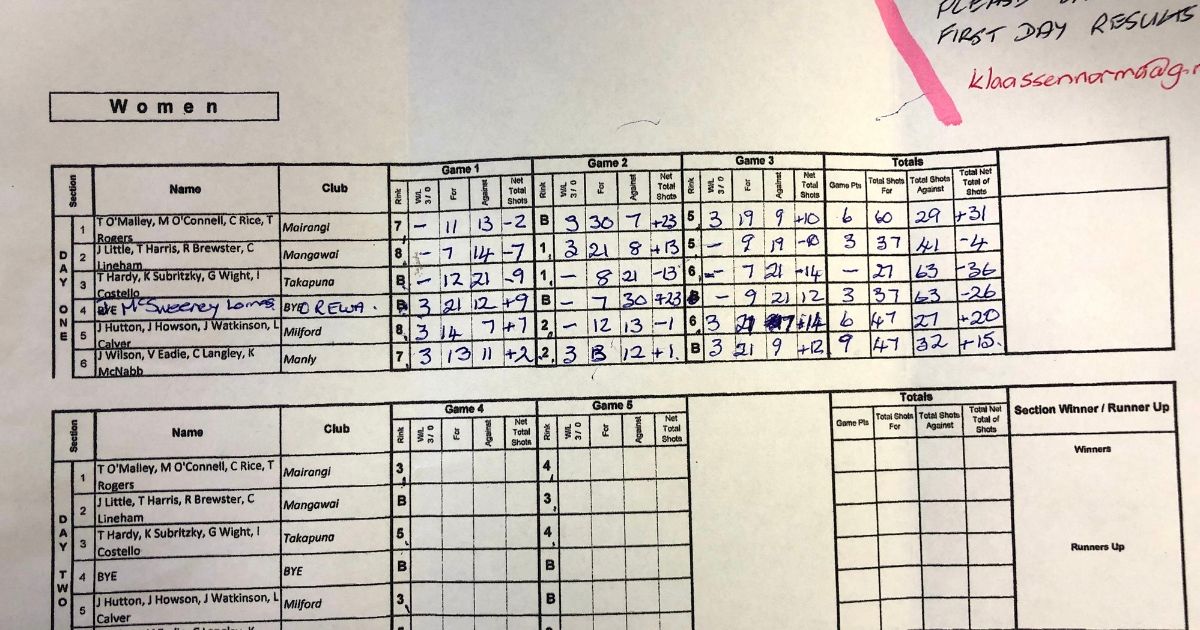 FIRST DAY RESULTS
klaassennorma@g
Women
Game 1 Game 2 Game 3 Totals
Section Name Club Rink W/L 3/0 For Against Net Total Shots Rink W/L 3/0 For Against Net Total Shots Rink W/L 3/0 For Against Net Total Shots Game Pts Total Shots For Total Shots Against Total Net Total of Shots
DAY ONE
1 T O'Malley, M O'Connell, C Rice, T Rogers Mairangi 7 - 11 13 -2 B 3 30 7 +23 5 3 19 9 +10 6 60 29 +31
2 J Little, T Harris, R Brewster, C Lineham Mangawai 8 - 7 14 -7 1 3 21 8 +13 5 - 9 19 3 37 41 -4
3 T Hardy, K Subritzky, G Wight, I Costello Takapuna B - 12 21 -9 1 - 8 21 -13 6 - 7 21 -14 - 27 63 -36
4 BYE McSweeney BYE OREWA. B 3 21 12 +9 B - 7 30 +23 B - 9 21 12 3 37 63 -26
5 J Hutton, J Howson, J Watkinson, L Calver Milford 8 3 14 7 +7 2 - 12 13 -1 6 3 21 7 +14 6 47 27 +20
6 J Wilson, V Eadie, C Langley, K McNabb Manly 7 3 13 11 +2 2 3 13 12 +1 B 3 21 9 +12 9 47 32 +15
Game 4 Game 5 Totals
Section Name Club Rink W/L 3/0 For Against Net Total Shots Rink W/L 3/0 For Against Net Total Shots Game Pts Total Shots For Total Shots Against Total Net Total of Shots Section Winner / Runner Up
DAY TWO
1 T O'Malley, M O'Connell, C Rice, T Rogers Mairangi 3 4 Winners
2 J Little, T Harris, R Brewster, C Lineham Mangawai B 3
3 T Hardy, K Subritzky, G Wight, I Costello Takapuna 5 4 Runners Up
4 BYE BYE B B
5 J Hutton, J Howson, J Watkinson, L Calver Milford 3 B